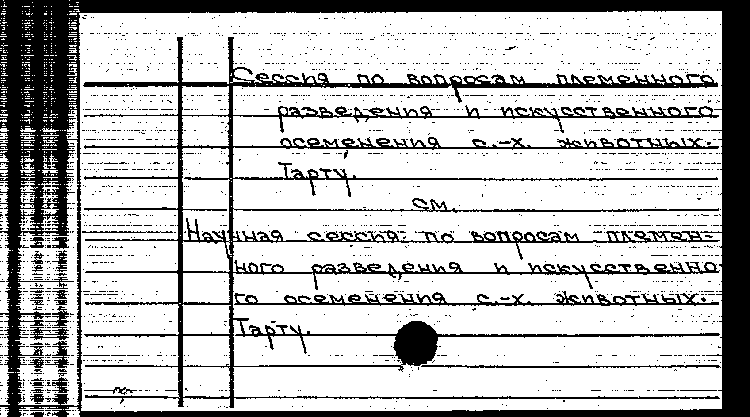 Сессия по вопросам племенного
разведения и искусственного
осеменения с.-х. животных.
Тарту.
см.
Научная сессия по вопросам племен-
ного разведения и искусственно-
го осеменения с.-х. животных.
Тарту.